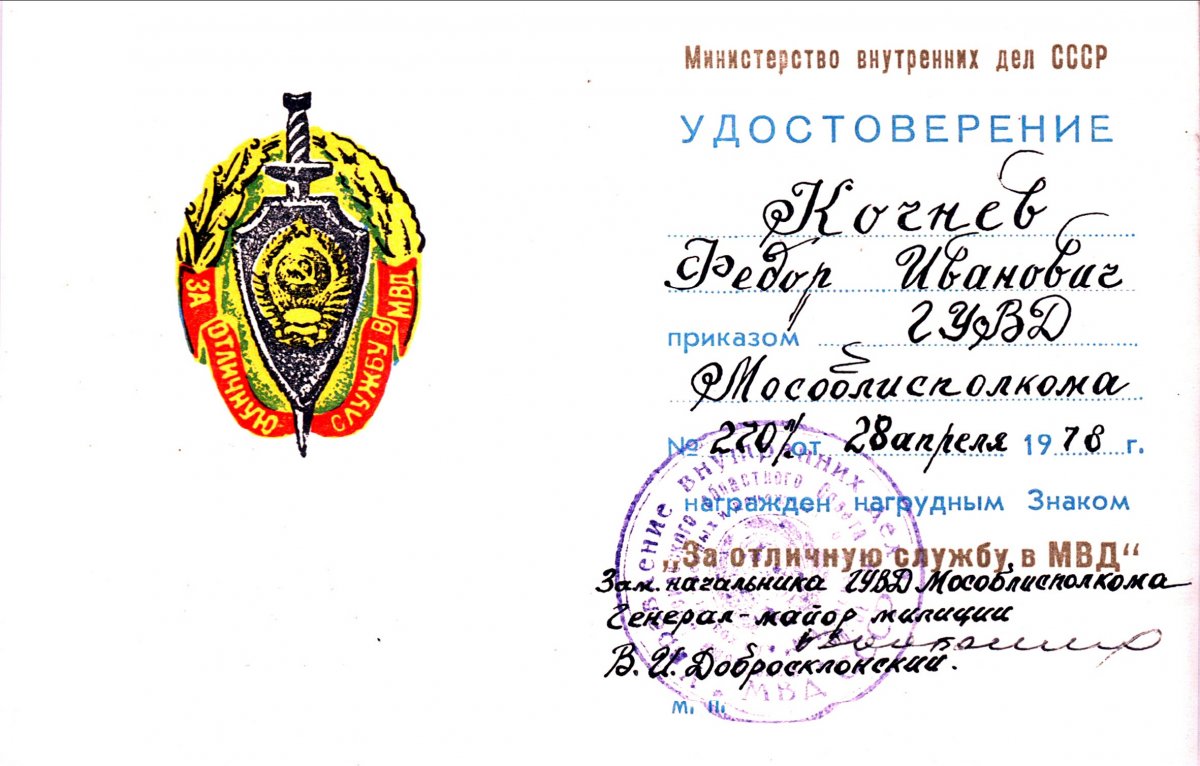 ЗА ОТЛИЧНУЮ СЛУЖБУ В МВД
Министерство внутренних дел СССР
УДОСТОВЕРЕНИЕ
Кочнев
Федор Иванович
приказом ГУВД
Мособлисполкома
№ 270 от 28 апреля 1978 г.
награжден нагрудным Знаком
„За отличную службу в МВД“
Зам. начальника ГУВД Мособлисполкома
Генерал-майор милиции
В. И. Добросклонский.
М. П.
внутренних дел
областного Совета
МВД